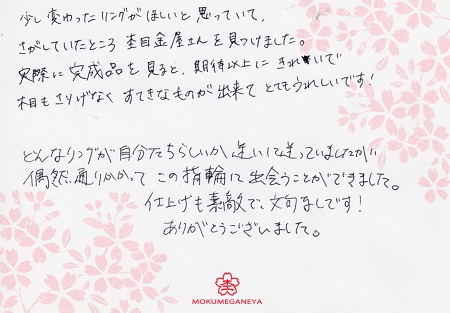 少し変わったリングがほしいと思っていて、
さがしていたところ杢目金屋さんを見つけました。
実際に完成品を見ると、期待以上にきれいで
木目もさりげなくすてきなものが出来てとてもうれしいです!
どんなリングが自分たちらしいか迷いに迷っていましたが
偶然通りかかってこの指輪に出会うことができました。
仕上げも素敵で、文句なしです!
ありがとうございました。
杢
MOKUMEGANEYA